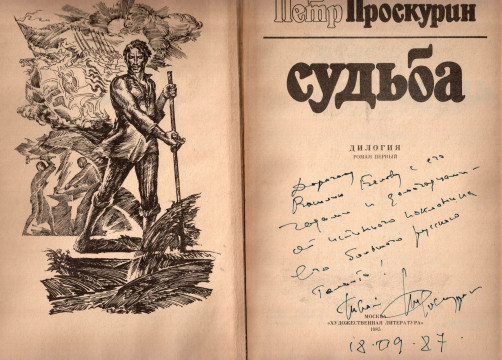 Петр Проскурин
судьба
ДИЛОГИЯ
РОМАН ПЕРВЫЙ
Дорогому
Василию Белову с его
годами и
от истинного поклонника
его большого русского
таланта!
МОСКВА
«ХУДОЖЕСТВЕННАЯ ЛИТЕРАТУРА»
1985
18.09.87.